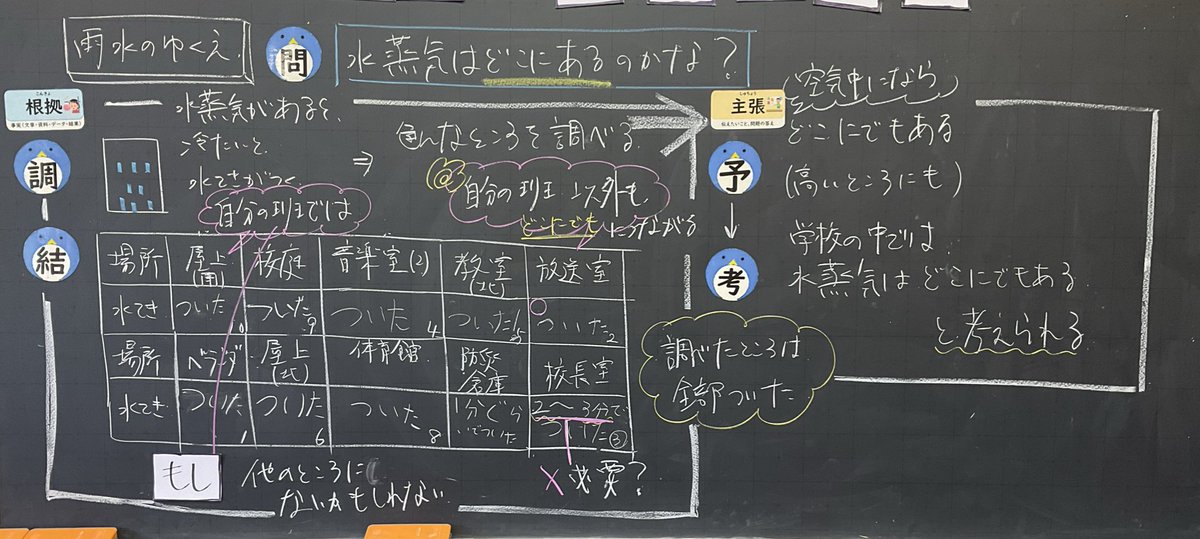 雨水のゆくえ
問
水蒸気はどこにあるのかな？
こんきょ
根拠
事実（文章・資料・データ・結果）
調
結
水蒸気があると
冷たいと
水てきがつく
⇒ 色んなところを調べる
自分の班では
@ 自分の班以外も
どこにでもにつながる
場所 屋上(南) 校庭 音楽室(2) 教室(北) 放送室
水てき ついた ついた 9 ついた 4 ついた 5 ついた 2
場所 ベランダ 屋上(北) 体育館 防災倉庫 校長室
水てき ついた 1 ついた 6 ついた 8 1分ぐらいでついた 2〜3分でついた ③
もし
他のところに
ないかもしれない
× 必要？
しゅちょう
主張
伝えたいこと、問題の答え
予
考
空気中になら
どこにでもある
(高いところにも)
学校の中では
水蒸気はどこにでもある
と考えられる
調べたところは
全部ついた